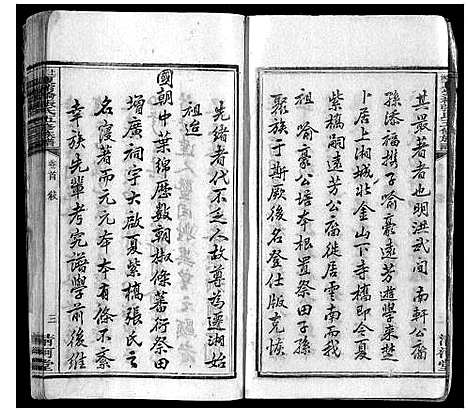 其最著者也明洪武間南軒公裔
孫添福攜子喻豪遠芳遊學來楚
卜居上湘城北金山下寺橋即今夏
紫橋嗣遠芳公徙居雲南而我
祖喻豪公培本根置祭田子孫
聚族于斯厥後名登仕版克恢
先緒者代不乏人故尊為遷湘始
祖迨
國朝中葉綿歷數朝椒條蕃衍祭田
增廣祠宇大啟夏紫橋張氏之
名寖著而元元本本有條不
幸族先輩考究譜學前後維
卷首 敍
三
清河堂